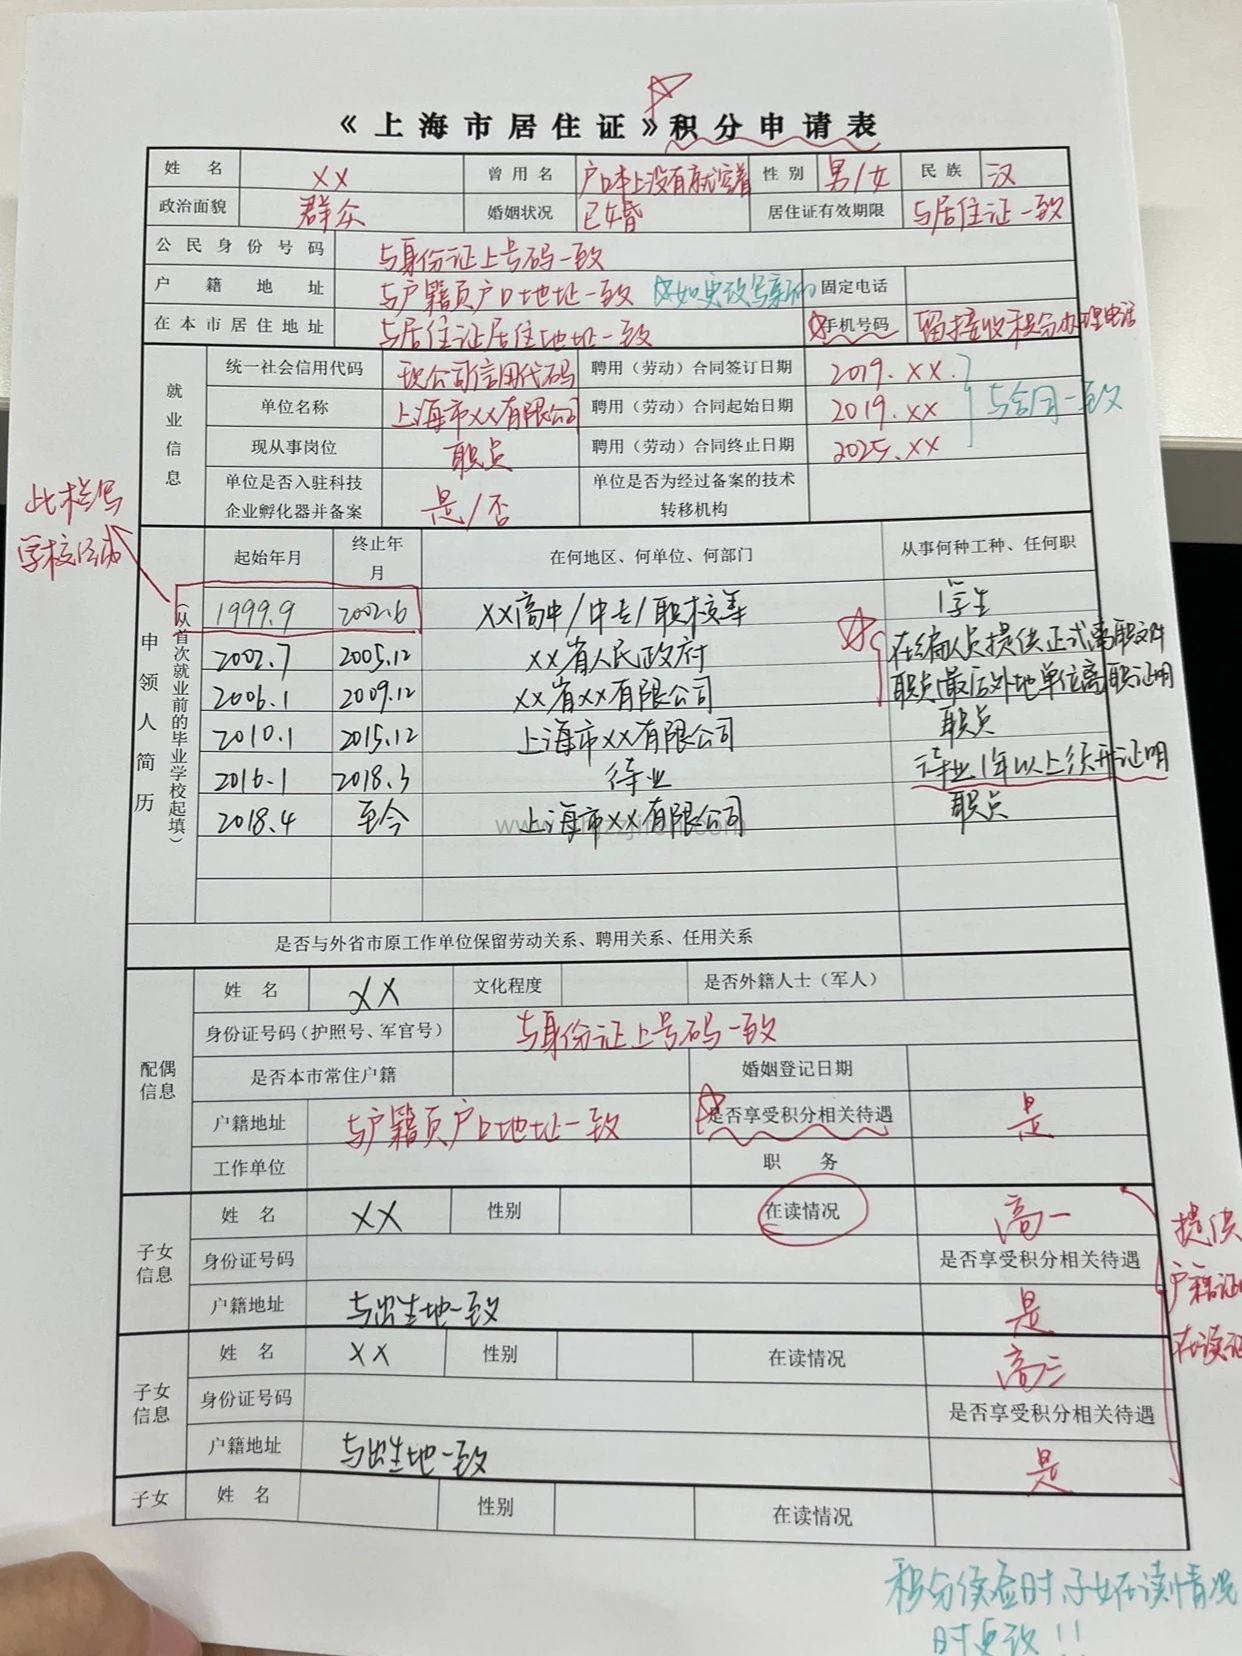 《上海市居住证》积分申请表
姓名 XX 曾用名 户口本上没有就空着 性别 男/女 民族 汉
政治面貌 群众 婚姻状况 已婚 居住证有效期限 与居住证一致
公民身份号码 与身份证上号码一致
户籍地址 与户籍页户口地址一致 如更改写新的 固定电话
在本市居住地址 与居住证居住地址一致 手机号码 留接收积分办理电话
就业信息
统一社会信用代码 现公司信用代码 聘用（劳动）合同签订日期 2019.XX.
单位名称 上海市XX有限公司 聘用（劳动）合同起始日期 2019.XX 与合同一致
现从事岗位 职员 聘用（劳动）合同终止日期 2025.XX
单位是否入驻科技企业孵化器并备案 是/否 单位是否为经过备案的技术转移机构
此栏写
学校经历
申领人简历
（从首次就业前的毕业学校起填）
起始年月 终止年月 在何地区、何单位、何部门 从事何种工种、任何职
1999.9 2002.6 XX高中/中专/职校等 学生
2002.7 2005.12 XX省人民政府 在编人员提供正式离职文件
2006.1 2009.12 XX省XX有限公司 职员(最后外地单位离职证明
2010.1 2015.12 上海市XX有限公司 职员
2016.1 2018.3 待业 待业1年以上须开证明
2018.4 至今 上海市XX有限公司 职员
是否与外省市原工作单位保留劳动关系、聘用关系、任用关系
配偶信息
姓名 XX 文化程度 是否外籍人士（军人）
身份证号码（护照号、军官号） 与身份证上号码一致
是否本市常住户籍 婚姻登记日期
户籍地址 与户籍页户口地址一致 是否享受积分相关待遇 是
工作单位 职务
子女信息
姓名 XX 性别 在读情况 高一
身份证号码 是否享受积分相关待遇
户籍地址 与出生地一致 是
提供
户籍证
在读证
子女信息
姓名 XX 性别 在读情况 高三
身份证号码 是否享受积分相关待遇
户籍地址 与出生地一致 是
子女 姓名 性别 在读情况
积分续签时,子女在读情况
时更改!!